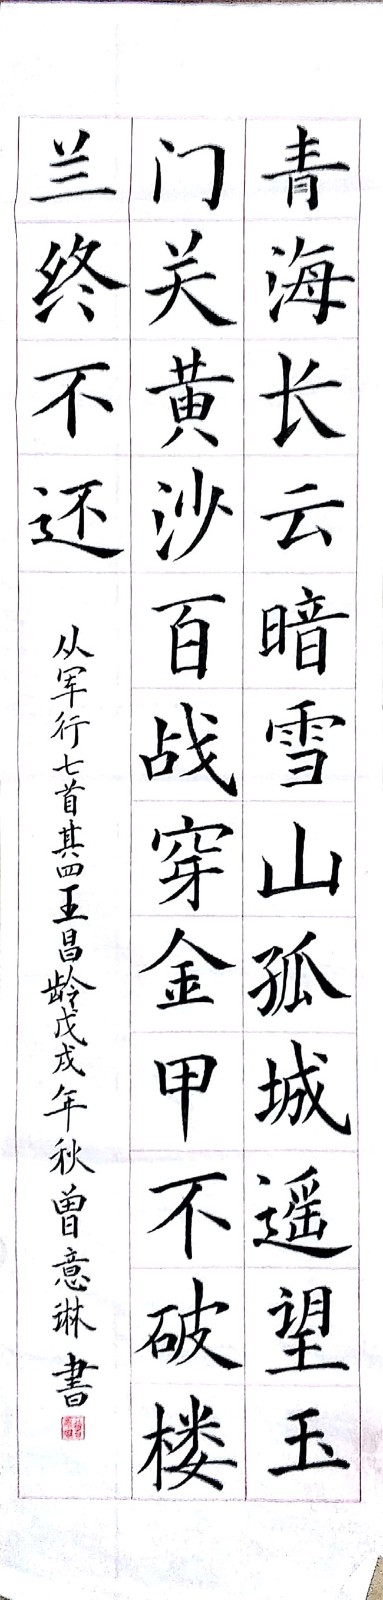 青海长云暗雪山孤城遥望玉
门关黄沙百战穿金甲不破楼
兰终不还
从军行七首其四王昌龄戊戌年秋曾意琳書